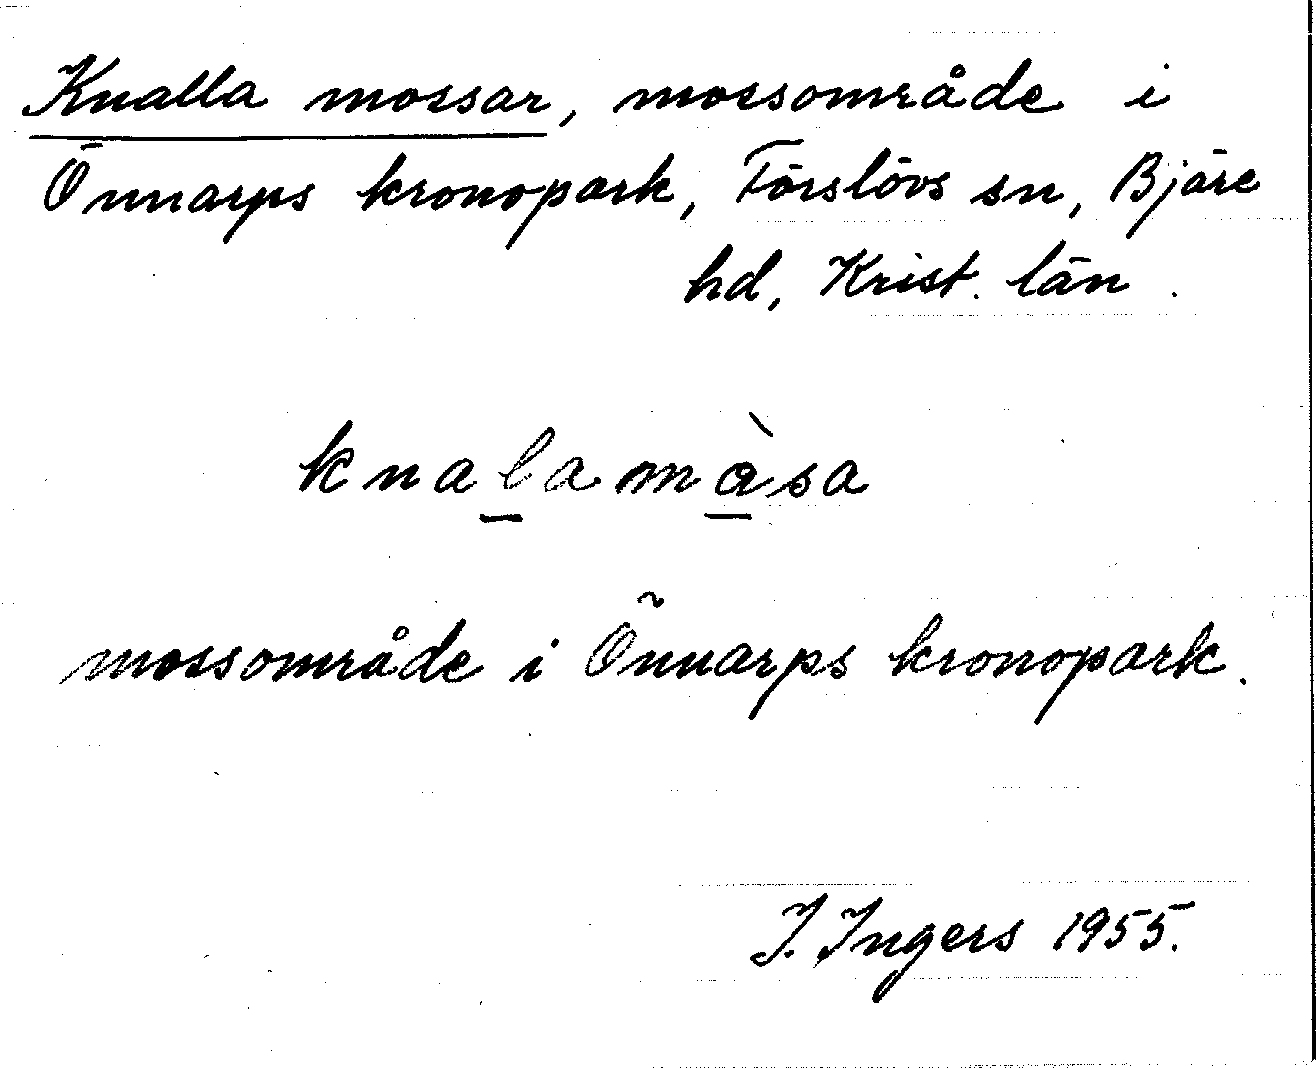 Knalla mossar, mossområde i
Önnarps kronopark, Förslövs sn, Bjäre
hd, Krist. län.
knalamàsa
mossområde i Önnarps kronopark.
I. Ingers 1955.